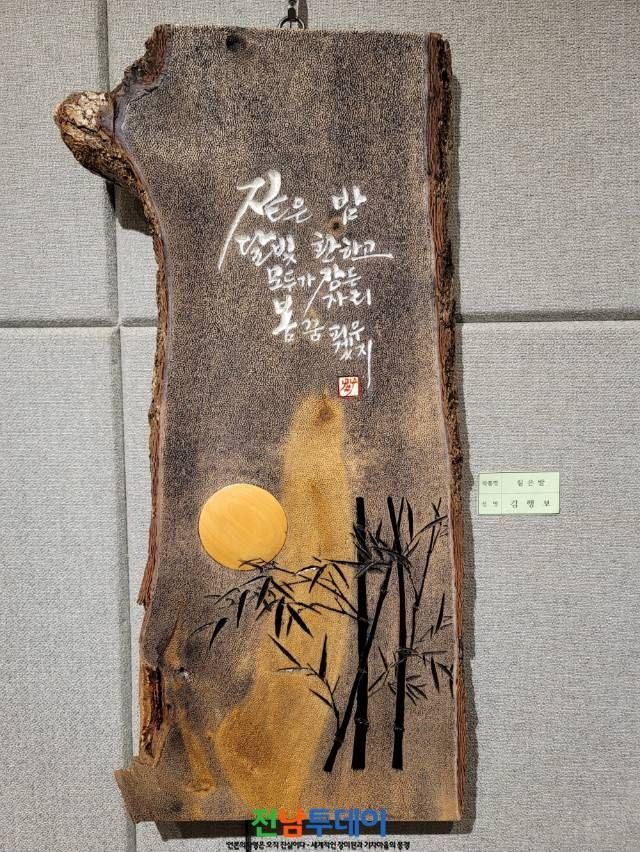 짙은 밤
달빛 환하고
모두가 잠든
자리
봄 꿈 피우
겠지
작품명 짙은밤
성명 김행보
전남투데이
"언론의 사명은 오직 진실이다 - 세계적인 장미원과 기차마을의 풍경